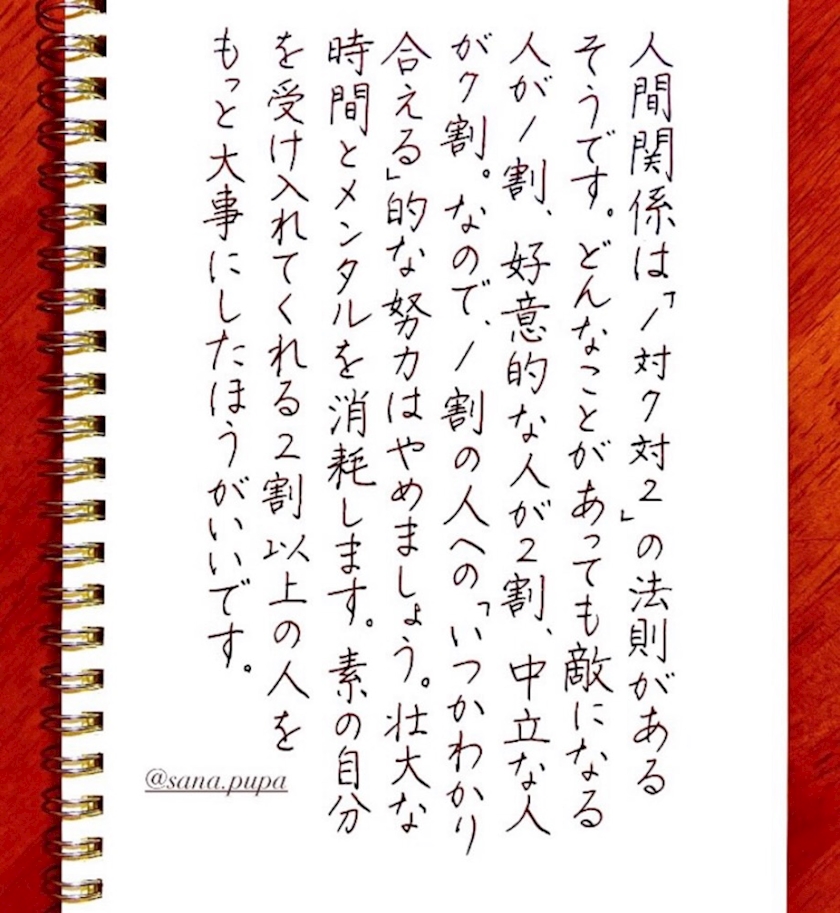 人間関係は「1対7対2」の法則がある
そうです。どんなことがあっても敵になる
人が1割、好意的な人が2割、中立な人
が7割。なので、1割の人への「いつかわかり
合える」的な努力はやめましょう。壮大な
時間とメンタルを消耗します。素の自分
を受け入れてくれる2割以上の人を
もっと大事にしたほうがいいです。
@sana.pupa